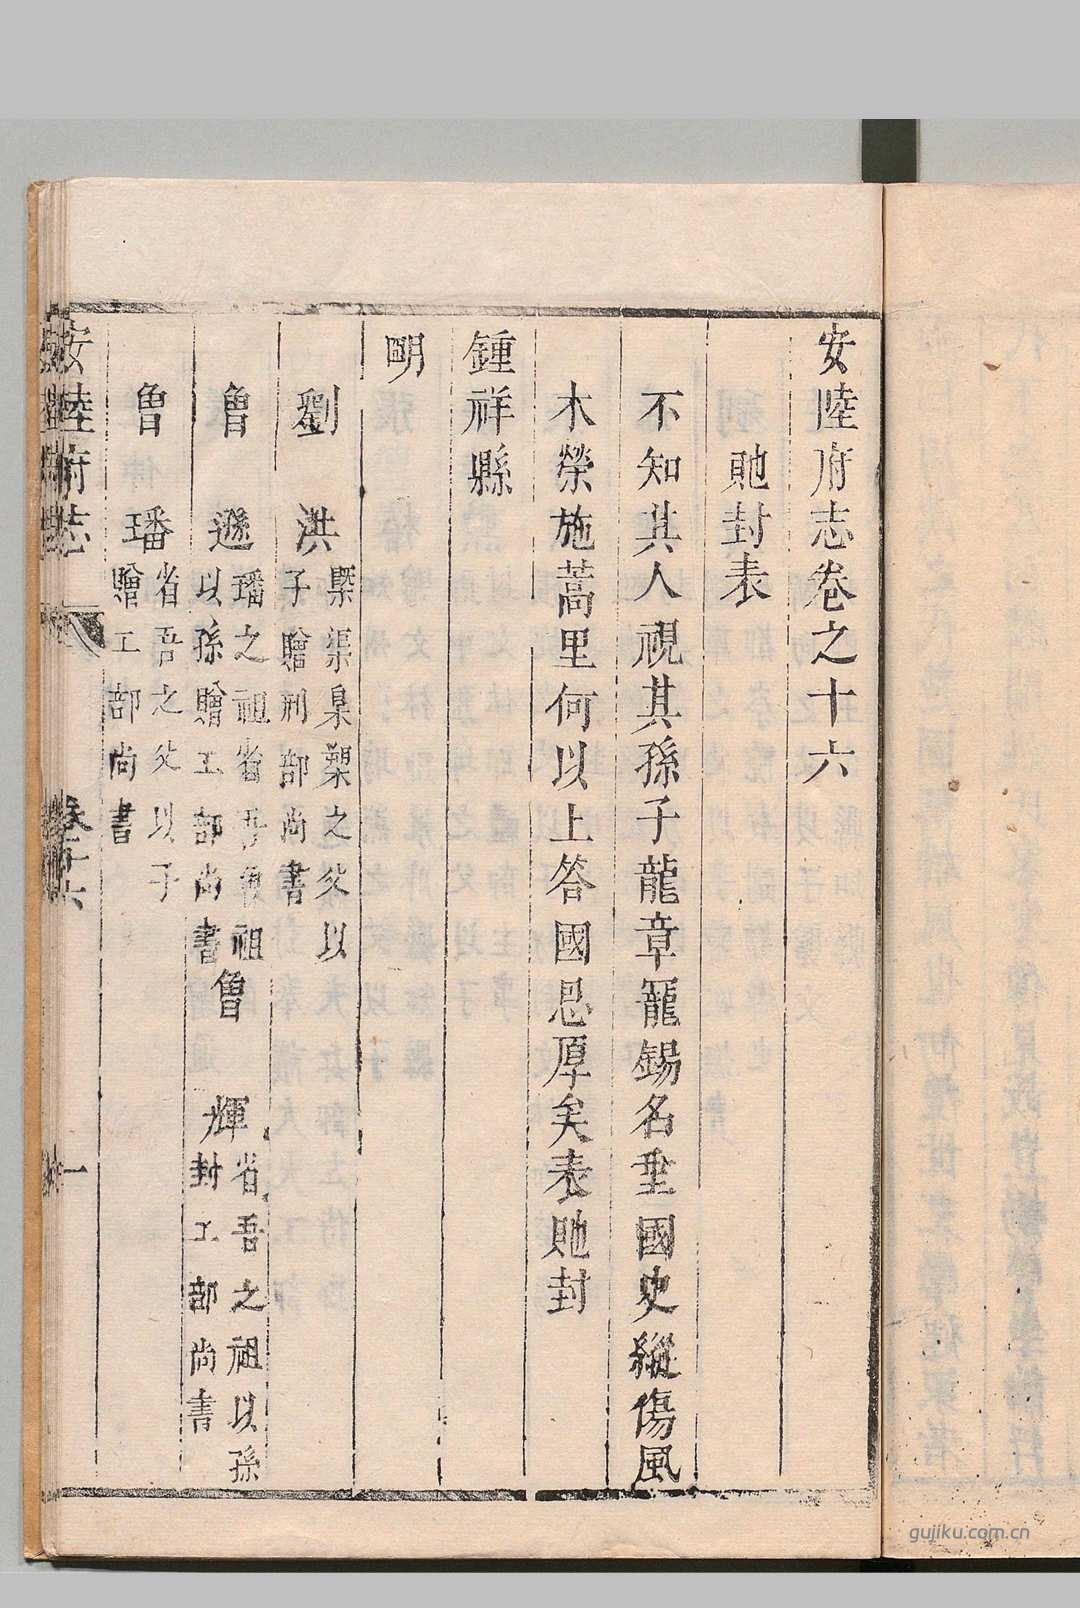 安陸府志卷之十六
貤封表
不知其人視其孫子龍章寵錫名垂國史縱傷風
木榮施蒿里何以上答國恩厚矣表貤封
鍾祥縣
明
劉洪
槩渠臬槊之父以
子贈刑部尚書
魯遜
璠之祖省吾曾祖
以孫贈工部尚書
魯輝
省吾之祖以孫
封工部尚書
魯璠
省吾之父以子
贈工部尚書
安陸府志
卷十六
一
gujiku.com.cn